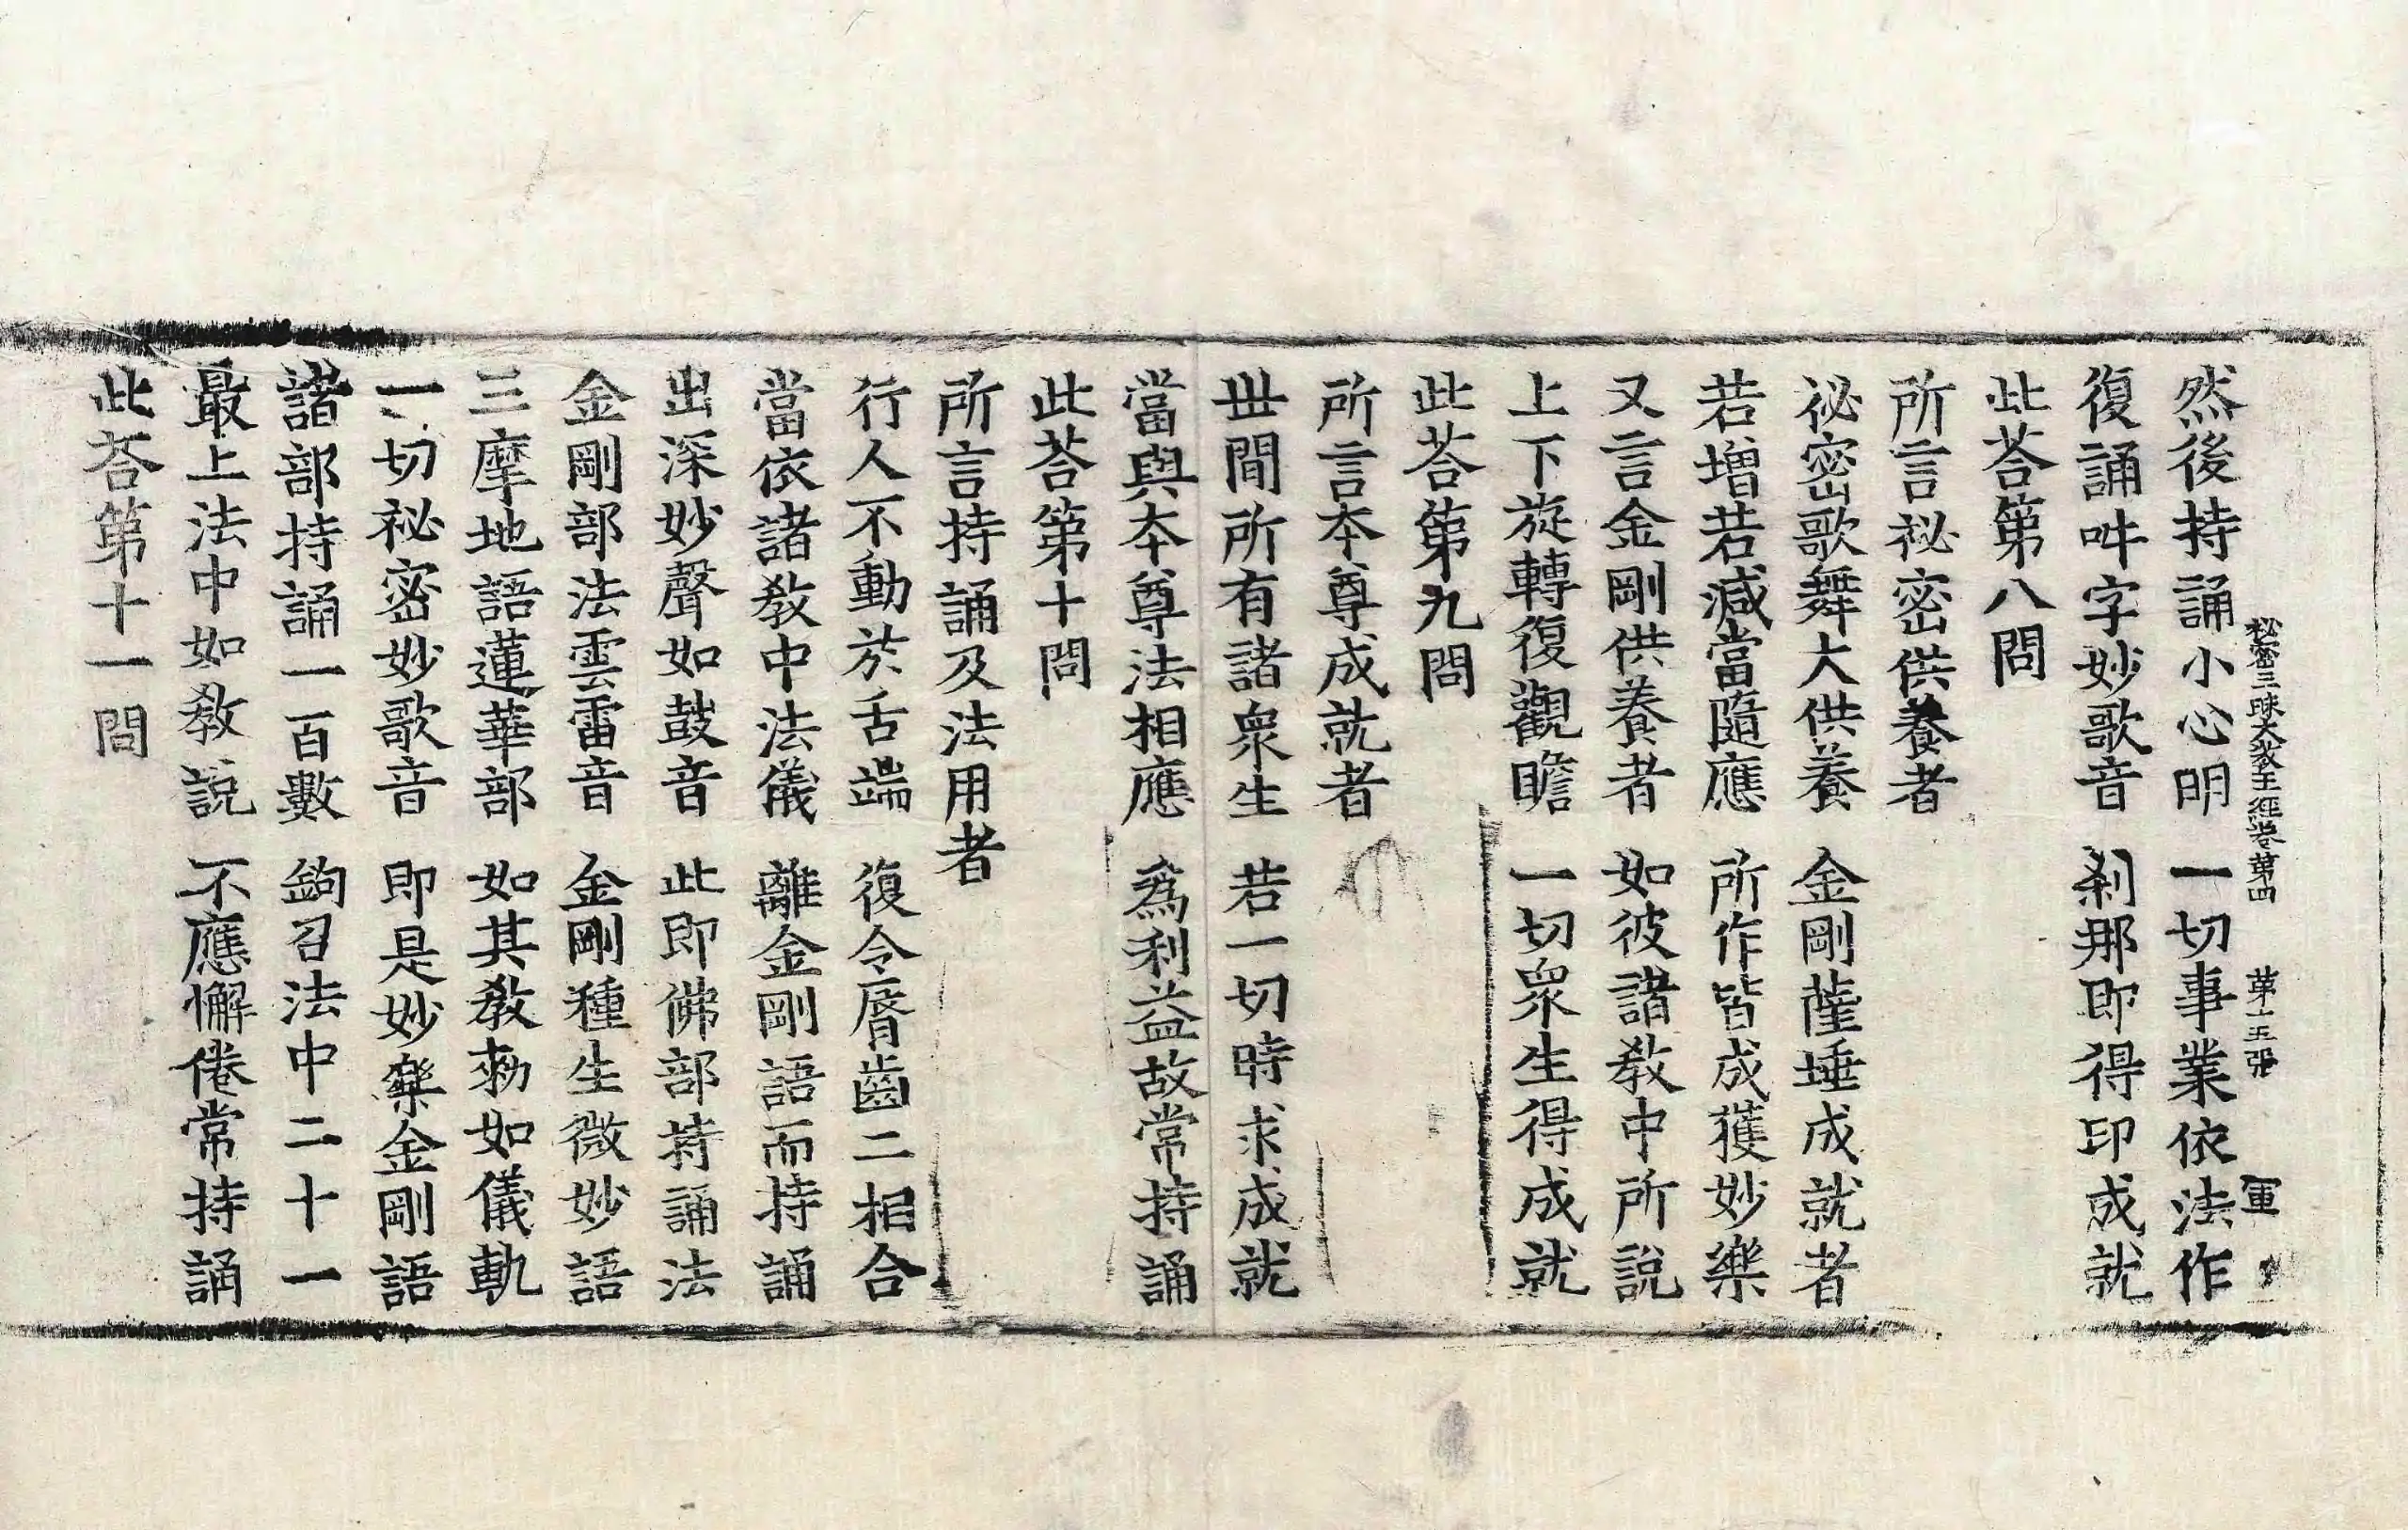 秘密三昧大教王經卷第四 第十五張 軍
然後持誦小心明 一切事業依法作
復誦吽字妙歌音 剎那即得印成就
此荅第八問
所言祕密供養者
祕密歌舞大供養 金剛薩埵成就者
若增若減當隨應 所作皆成獲妙樂
又言金剛供養者 如彼諸教中所說
上下旋轉復觀瞻 一切眾生得成就
此荅第九問
所言本尊成就者
世間所有諸眾生 若一切時求成就
當與本尊法相應 為利益故常持誦
此荅第十問
所言持誦及法用者
行人不動於舌端 復令脣齒二相合
當依諸教中法儀 離金剛語而持誦
出深妙聲如鼓音 此即佛部持誦法
金剛部法雲雷音 金剛種生微妙語
三摩地語蓮華部 如其教勑如儀軌
一切祕密妙歌音 即是妙樂金剛語
諸部持誦一百數 鉤召法中二十一
最上法中如教說 不應懈倦常持誦
此荅第十一問